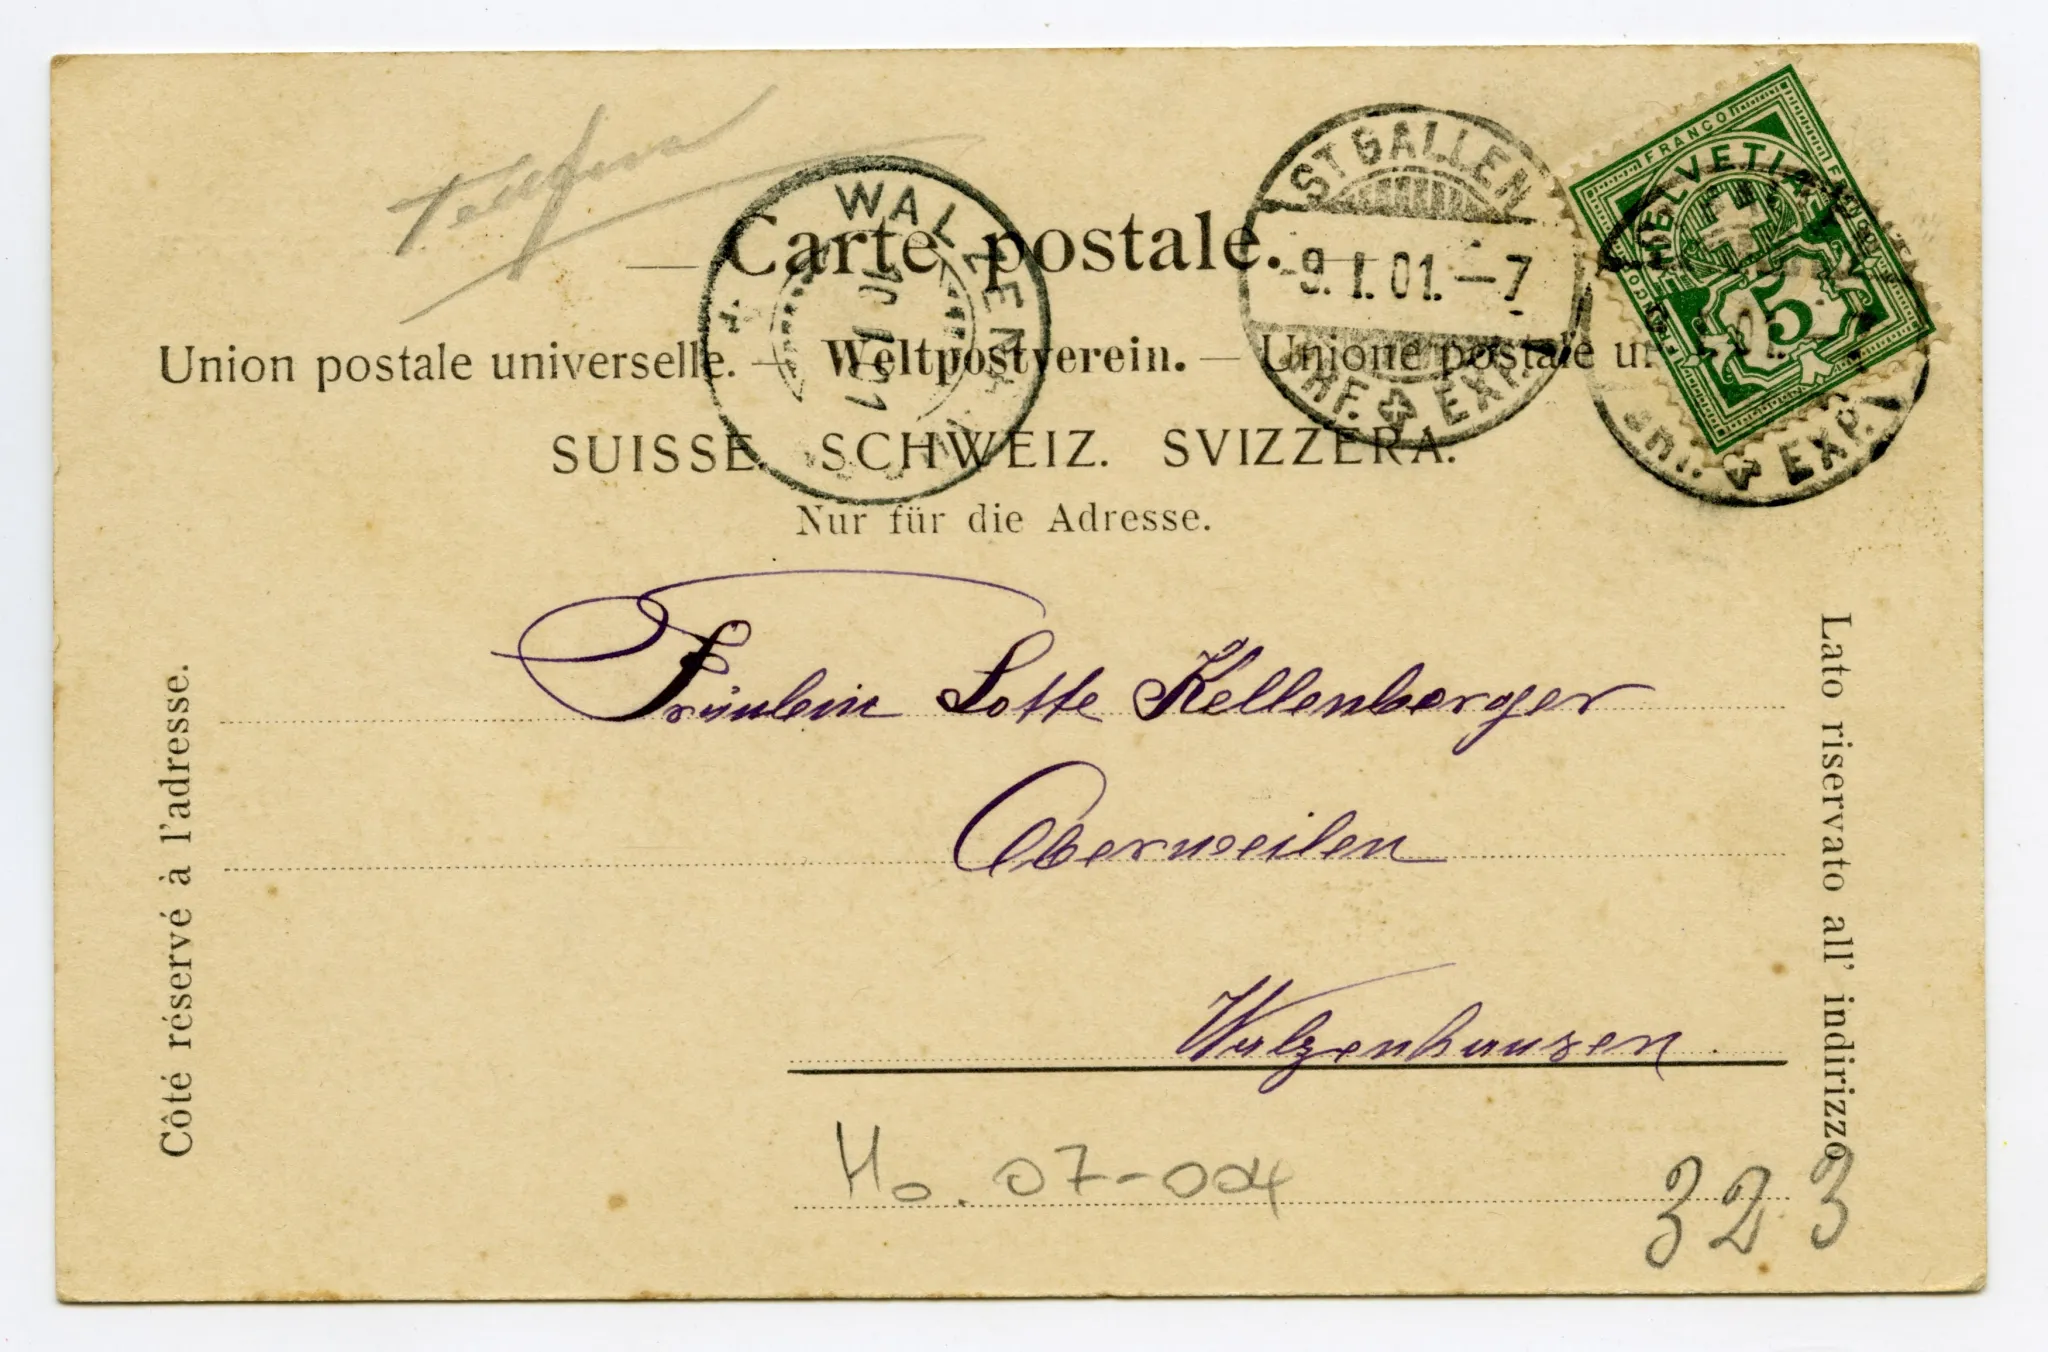 Carte postale.
Union postale universelle. — Weltpostverein. — Unione postale un
SUISSE. SCHWEIZ. SVIZZERA.
Nur für die Adresse.
WALZENHAUSEN
10 I 01
ST GALLEN
-9.I.01.-7
BRF. EXP.
FRANCO
HELVETIA
5
EXP.
Côté réservé à l'adresse.
Lato riservato all' indirizzo
Fräulein Lotte Kellenberger
Oberweilen
Walzenhausen.
Ho. 07-004
323